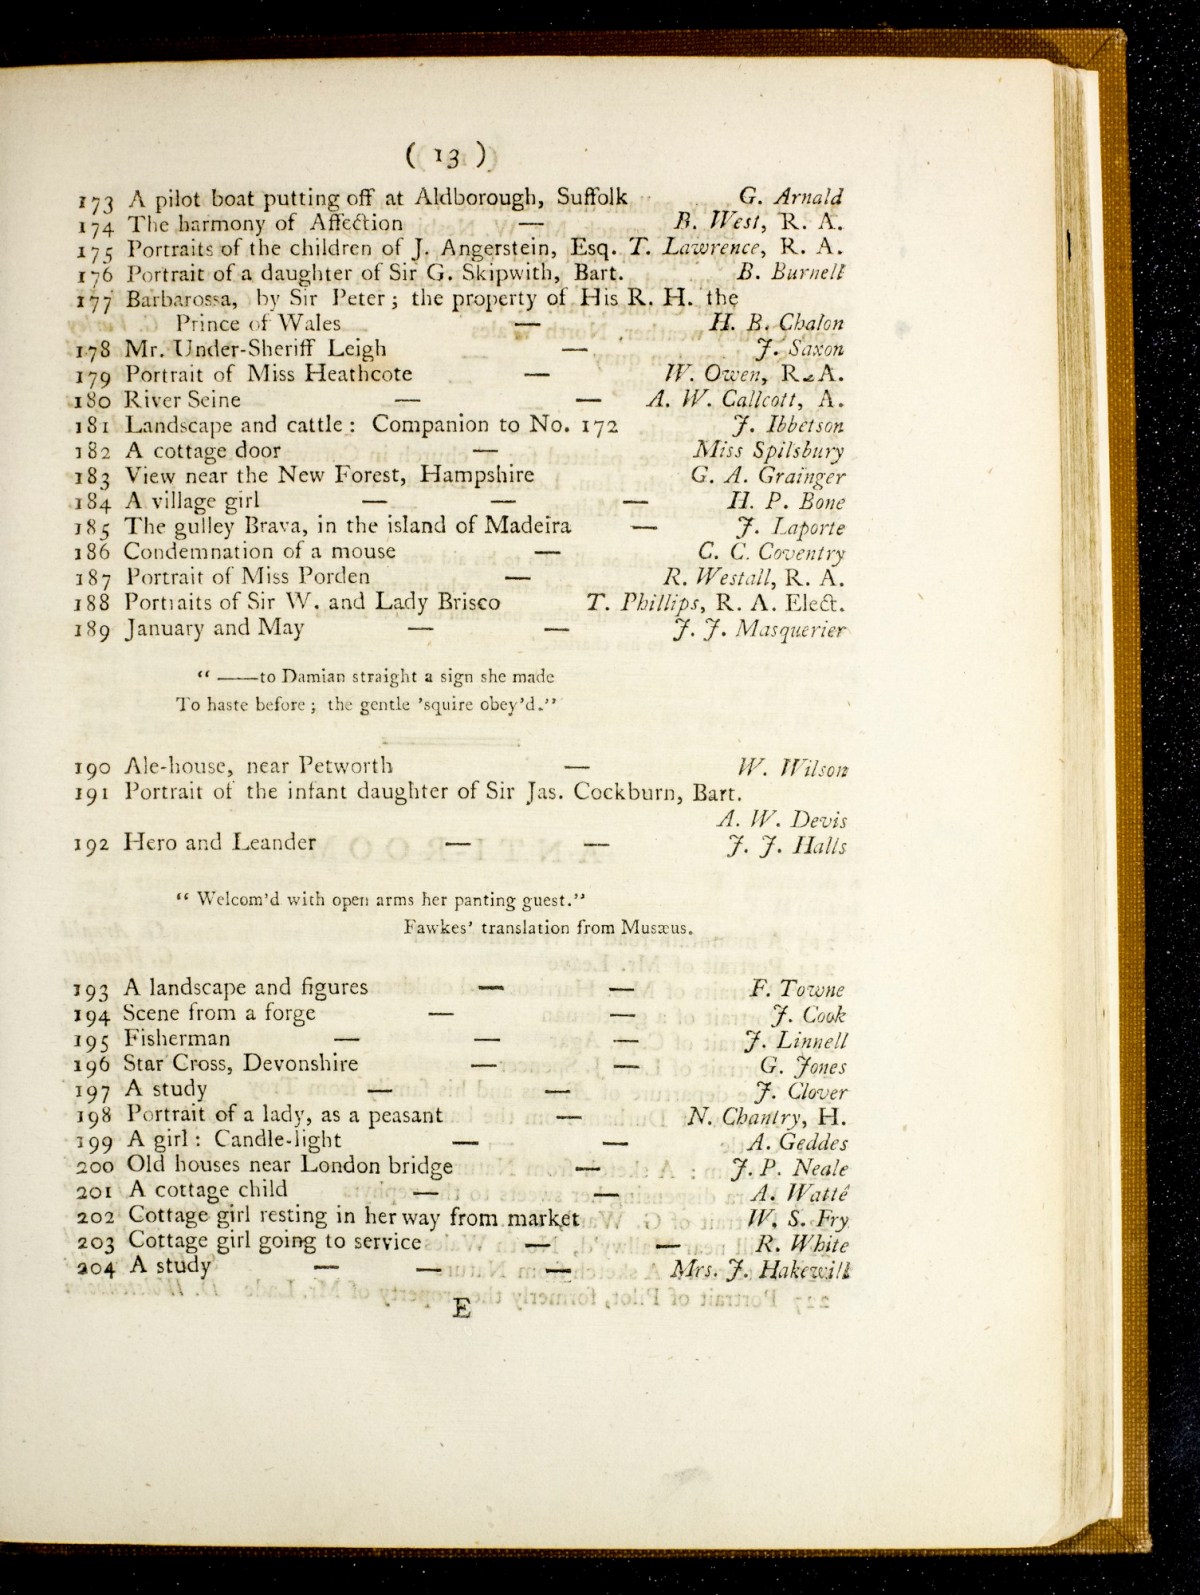 ( 13 )
173 A pilot boat putting off at Aldborough, Suffolk G. Arnald
174 The harmony of Affection — B. West, R. A.
175 Portraits of the children of J. Angerstein, Esq. T. Lawrence, R. A.
176 Portrait of a daughter of Sir G. Skipwith, Bart. B. Burnell
177 Barbarossa, by Sir Peter; the property of His R. H. the
Prince of Wales — H. B. Chalon
178 Mr. Under-Sheriff Leigh — J. Saxon
179 Portrait of Miss Heathcote — W. Owen, R. A.
180 River Seine — — A. W. Callcott, A.
181 Landscape and cattle: Companion to No. 172 J. Ibbetson
182 A cottage door — Miss Spilsbury
183 View near the New Forest, Hampshire G. A. Grainger
184 A village girl — — — H. P. Bone
185 The gulley Brava, in the island of Madeira — J. Laporte
186 Condemnation of a mouse — C. C. Coventry
187 Portrait of Miss Porden — R. Westall, R. A.
188 Portraits of Sir W. and Lady Brisco T. Phillips, R. A. Elect.
189 January and May — — J. J. Masquerier
“ ——to Damian straight a sign she made
To haste before; the gentle 'squire obey'd.”
190 Ale-house, near Petworth — W. Wilson
191 Portrait of the infant daughter of Sir Jas. Cockburn, Bart.
A. W. Devis
192 Hero and Leander — — J. J. Halls
“ Welcom'd with open arms her panting guest.”
Fawkes' translation from Musæus.
193 A landscape and figures — — F. Towne
194 Scene from a forge — — J. Cook
195 Fisherman — — — J. Linnell
196 Star Cross, Devonshire — — G. Jones
197 A study — — J. Clover
198 Portrait of a lady, as a peasant — N. Chantry, H.
199 A girl: Candle-light — — A. Geddes
200 Old houses near London bridge — J. P. Neale
201 A cottage child — — A. Watté
202 Cottage girl resting in her way from market W. S. Fry
203 Cottage girl going to service — — R. White
204 A study — — — Mrs. J. Hakewill
E